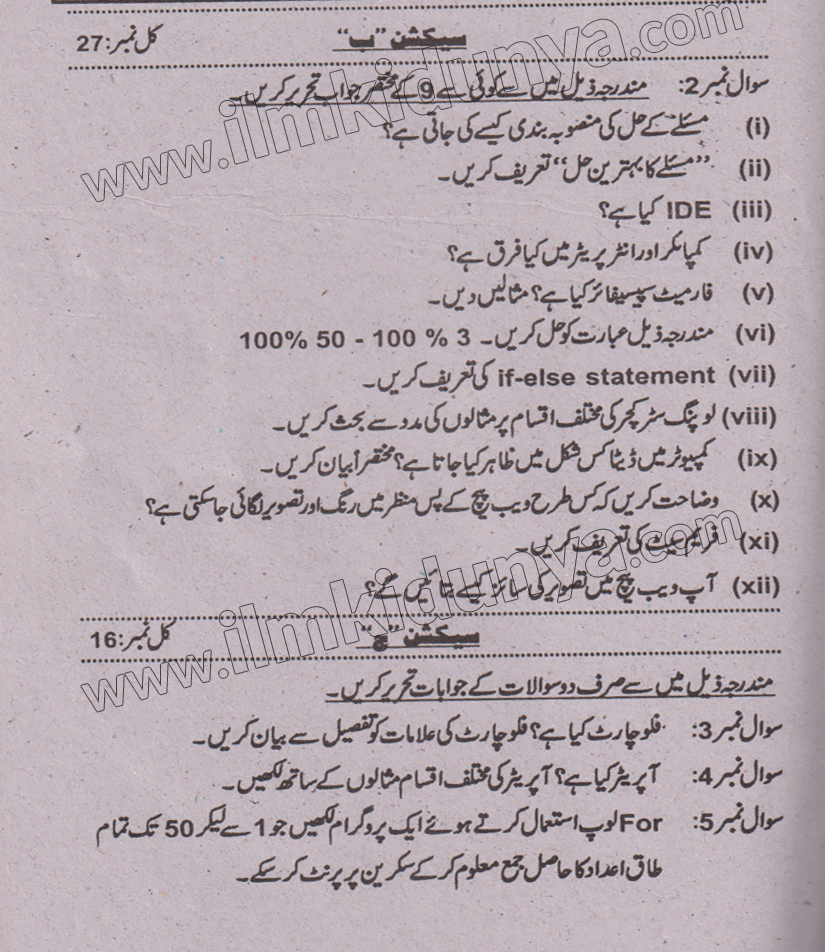 سیکشن ”ب“ کل نمبر: 27
سوال نمبر 2: مندرجہ ذیل میں سے کوئی سے 9 کے مختصر جواب تحریر کریں۔
(i) مسئلے کے حل کی منصوبہ بندی کیسے کی جاتی ہے؟
(ii) ”مسئلے کا بہترین حل“ تعریف کریں۔
(iii) IDE کیا ہے؟
(iv) کمپائلر اور انٹرپریٹر میں کیا فرق ہے؟
(v) فارمیٹ سپیسیفائر کیا ہے؟ مثالیں دیں۔
(vi) مندرجہ ذیل عبارت کو حل کریں۔ 100% 50 - 100 % 3
(vii) if-else statement کی تعریف کریں۔
(viii) لوپنگ سٹرکچر کی مختلف اقسام پر مثالوں کی مدد سے بحث کریں۔
(ix) کمپیوٹر میں ڈیٹا کس شکل میں ظاہر کیا جاتا ہے؟ مختصراً بیان کریں۔
(x) وضاحت کریں کہ کس طرح ویب پیج کے پس منظر میں رنگ اور تصویر لگائی جاسکتی ہے؟
(xi) فریم سیٹ کی تعریف کریں۔
(xii) آپ ویب پیج میں تصویر کی سائز کیسے بتائیں گے؟
سیکشن ”ج“ کل نمبر: 16
مندرجہ ذیل میں سے صرف دو سوالات کے جوابات تحریر کریں۔
سوال نمبر 3: فلوچارٹ کیا ہے؟ فلوچارٹ کی علامات کو تفصیل سے بیان کریں۔
سوال نمبر 4: آپریٹر کیا ہے؟ آپریٹر کی مختلف اقسام مثالوں کے ساتھ لکھیں۔
سوال نمبر 5: For لوپ استعمال کرتے ہوئے ایک پروگرام لکھیں جو 1 سے لیکر 50 تک تمام
طاق اعداد کا حاصل جمع معلوم کر کے سکرین پر پرنٹ کر سکے۔
www.ilmkidunya.com
www.ilmkidunya.com